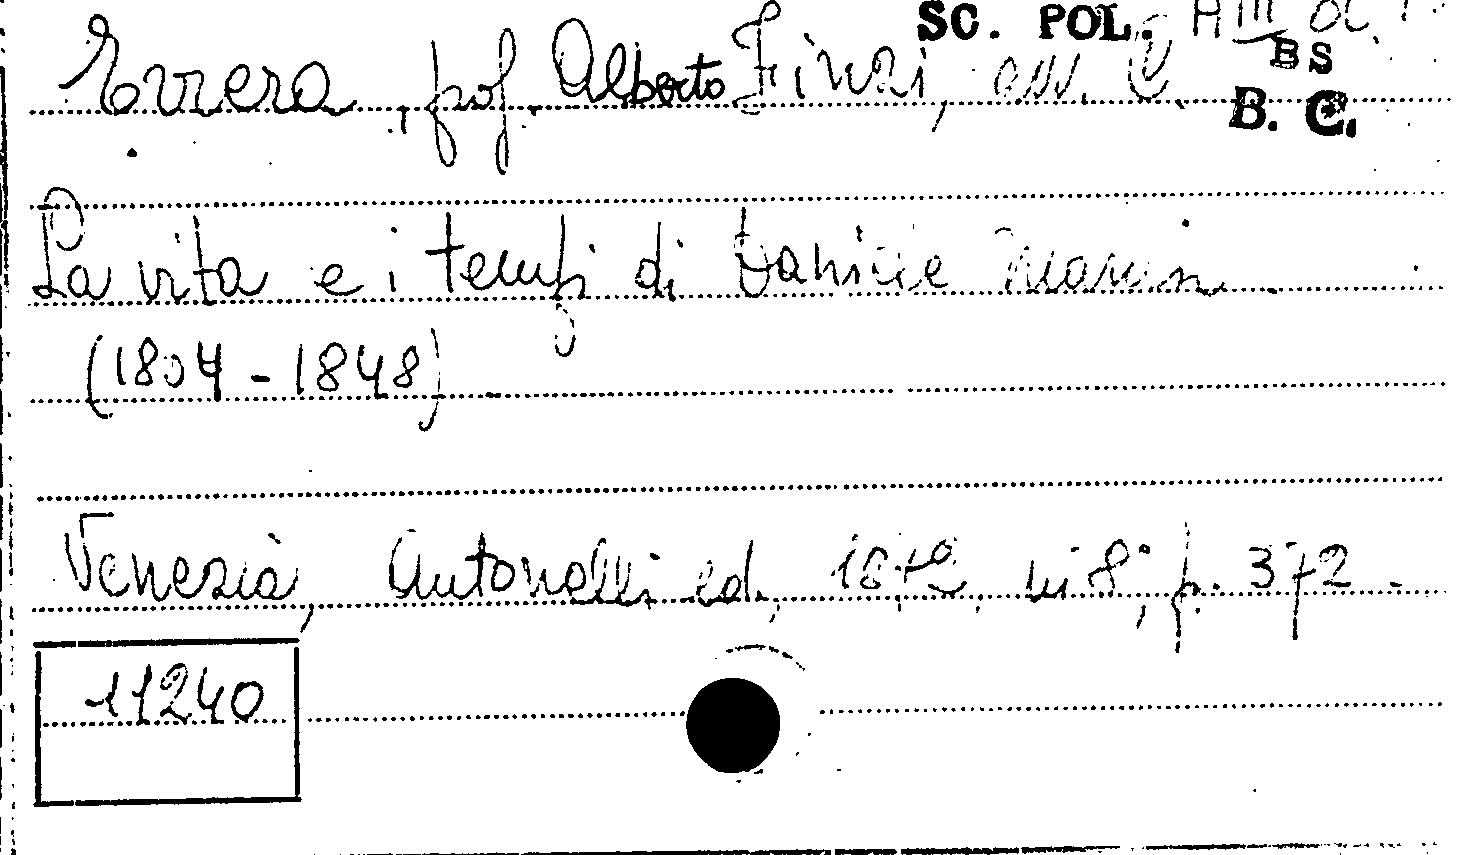 SC. POL.
BS
B. C.
Errera, prof. Alberto Finzi, avv. C.
La vita e i tempi di Daniele Manin
(1804-1848)
Venezia, Antonelli ed., 1872, in 8°, p. 372.
11240